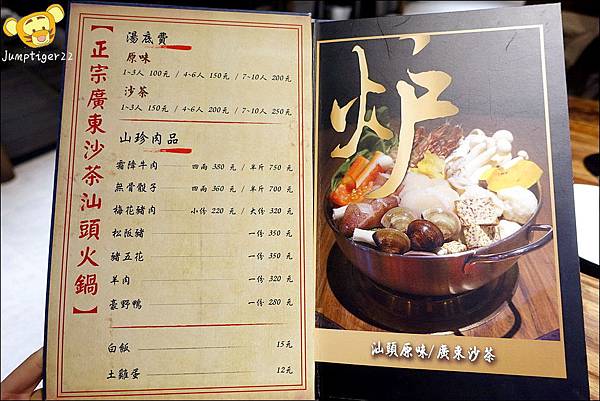 Jumptiger22
【正宗廣東沙茶汕頭火鍋】
湯底費
原味
1~3人 100元 / 4~6人 150元 / 7~10人 200元
沙茶
1~3人 150元 / 4~6人 200元 / 7~10人 250元
山珍肉品
霜降牛肉 四兩 380 元 / 半斤 750 元
無骨骰子 四兩 360 元 / 半斤 700 元
梅花豬肉 小份 220 元 / 大份 320 元
松阪豬 一份 350 元
豬五花 一份 350 元
羊肉 一份 320 元
豪野鴨 一份 280 元
白飯 15元
土雞蛋 12元
炉
汕頭原味/廣東沙茶